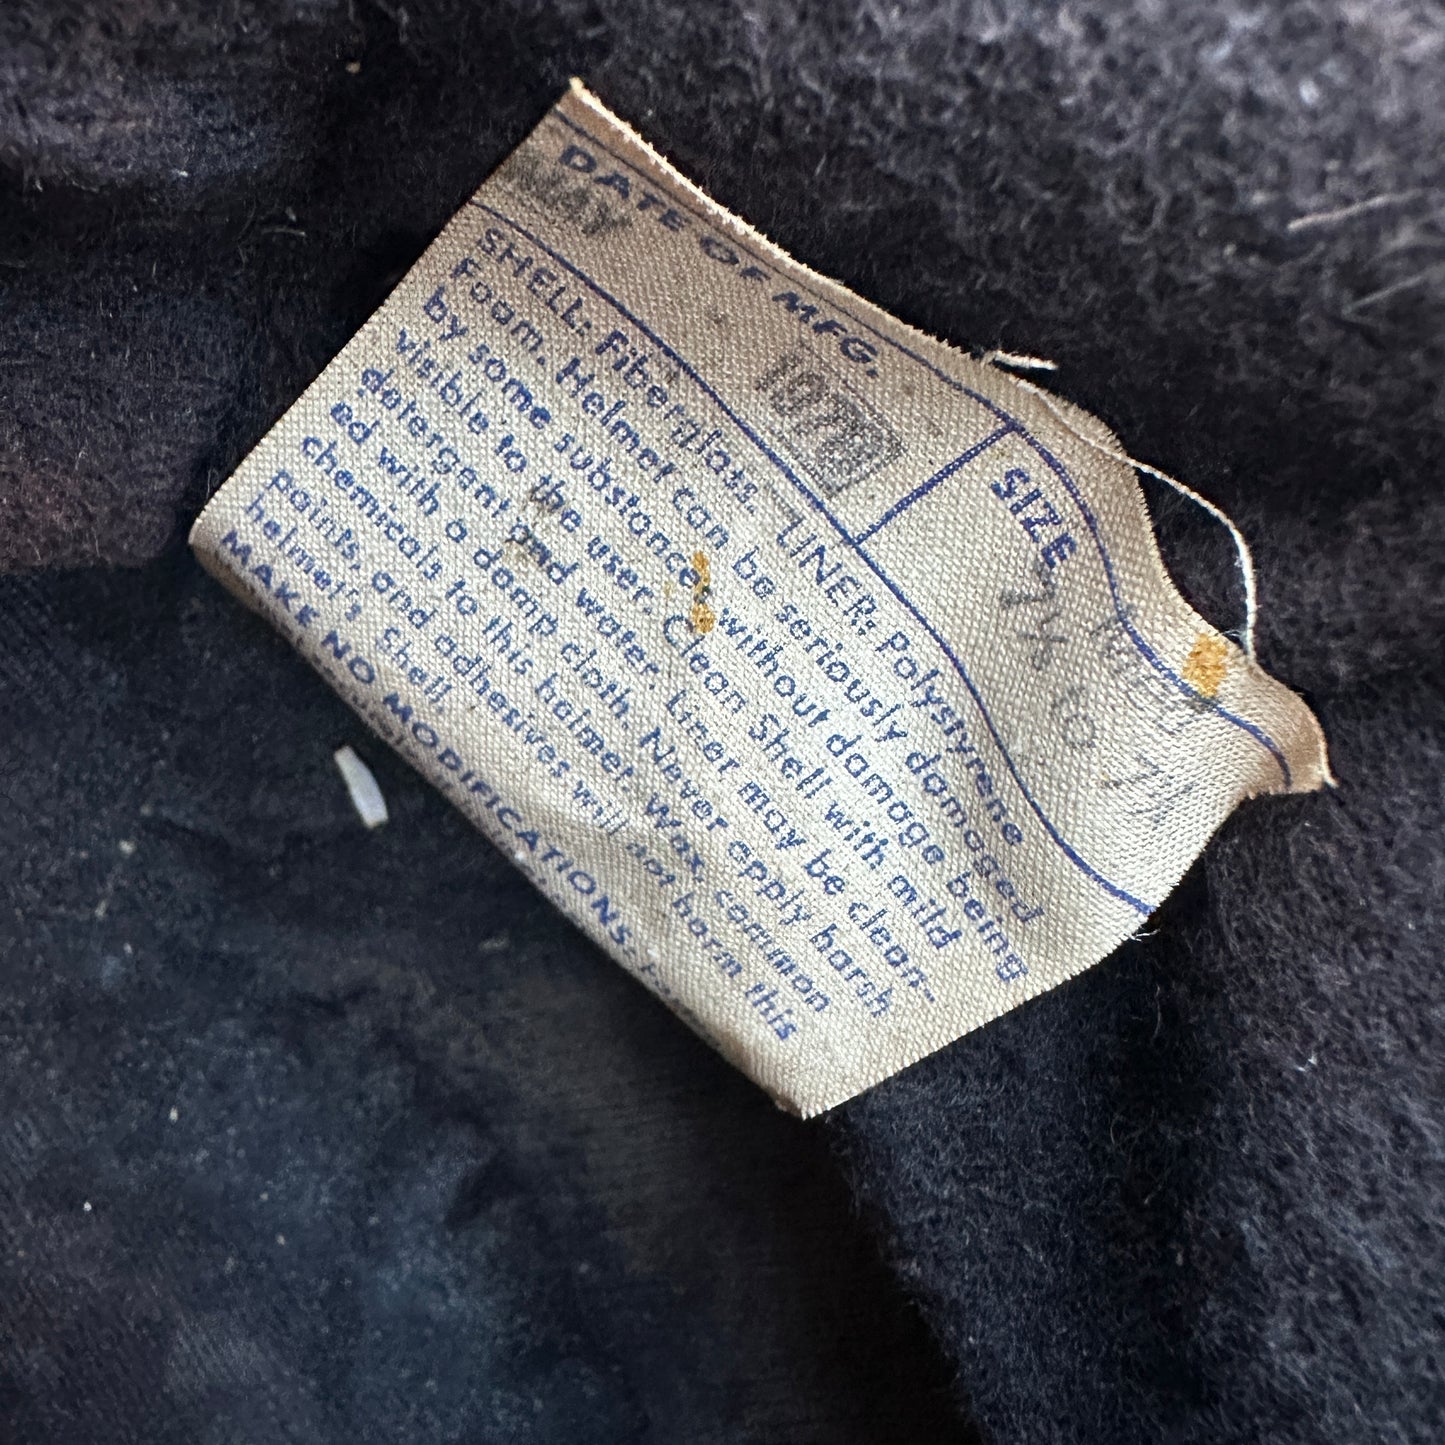 DATE OF MFG.
SIZE
MAY
7¼ to
SHELL: Fiberglass. LINER: Polystyrene
Foam. Helmet can be seriously damaged
by some substances without damage being
visible to the user. Clean Shell with mild
detergent and water. Liner may be clean-
ed with a damp cloth. Never apply harsh
chemicals to this helmet. Wax, common
paints, and adhesives will not harm this
helmet's Shell.
MAKE NO MODIFICATIONS: